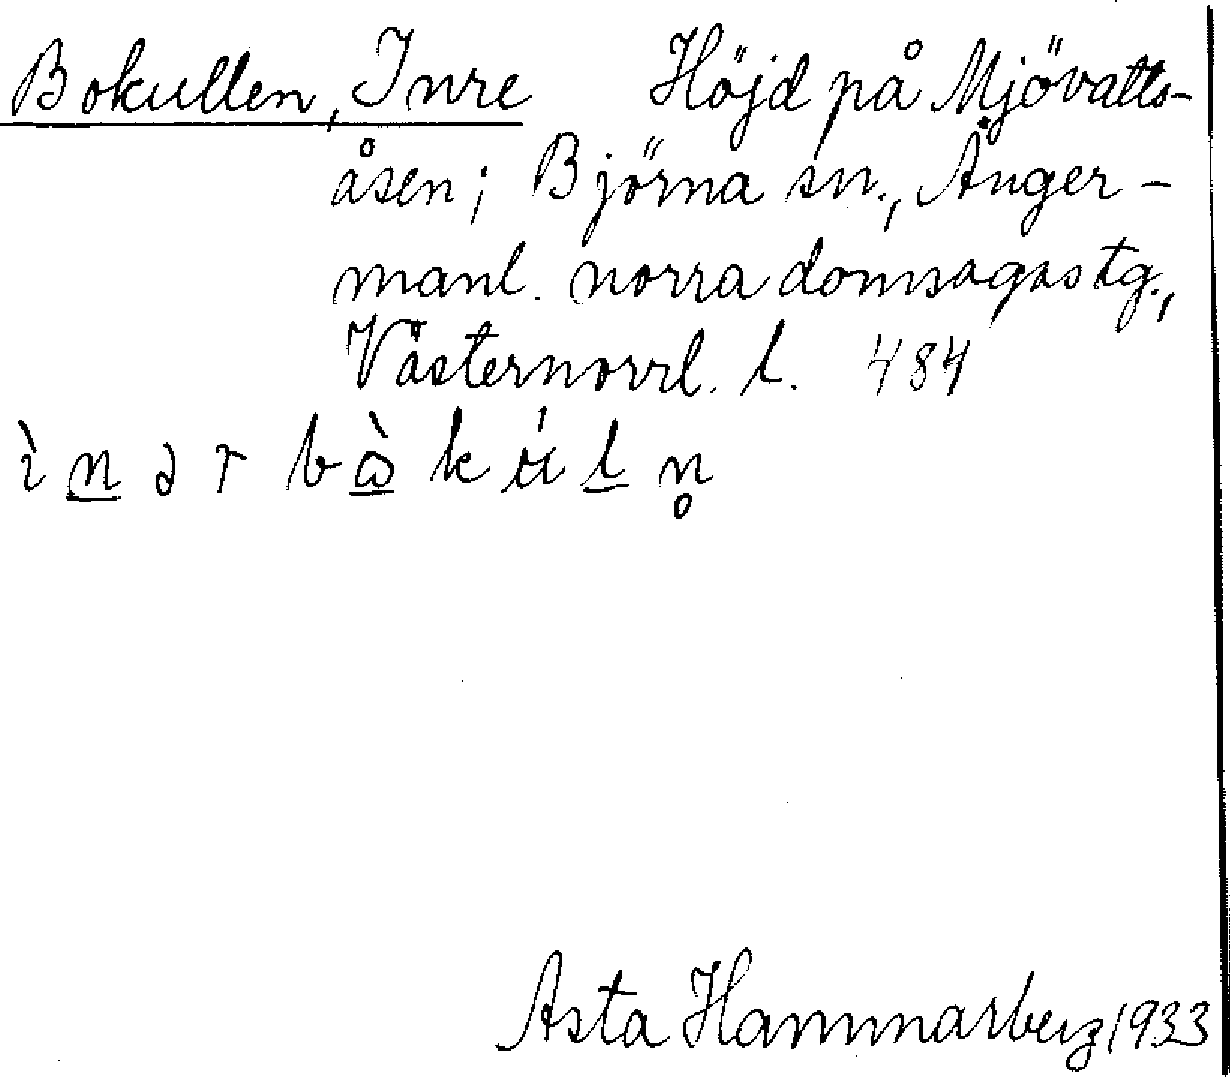 Bokullen, Inre Höjd på Mjövatts-
åsen; Björna sn., Ånger-
manl. norra domsagas tg.,
Västernorrl. l. 484
ìnər bàkúln̥
Asta Hammarberg 1933